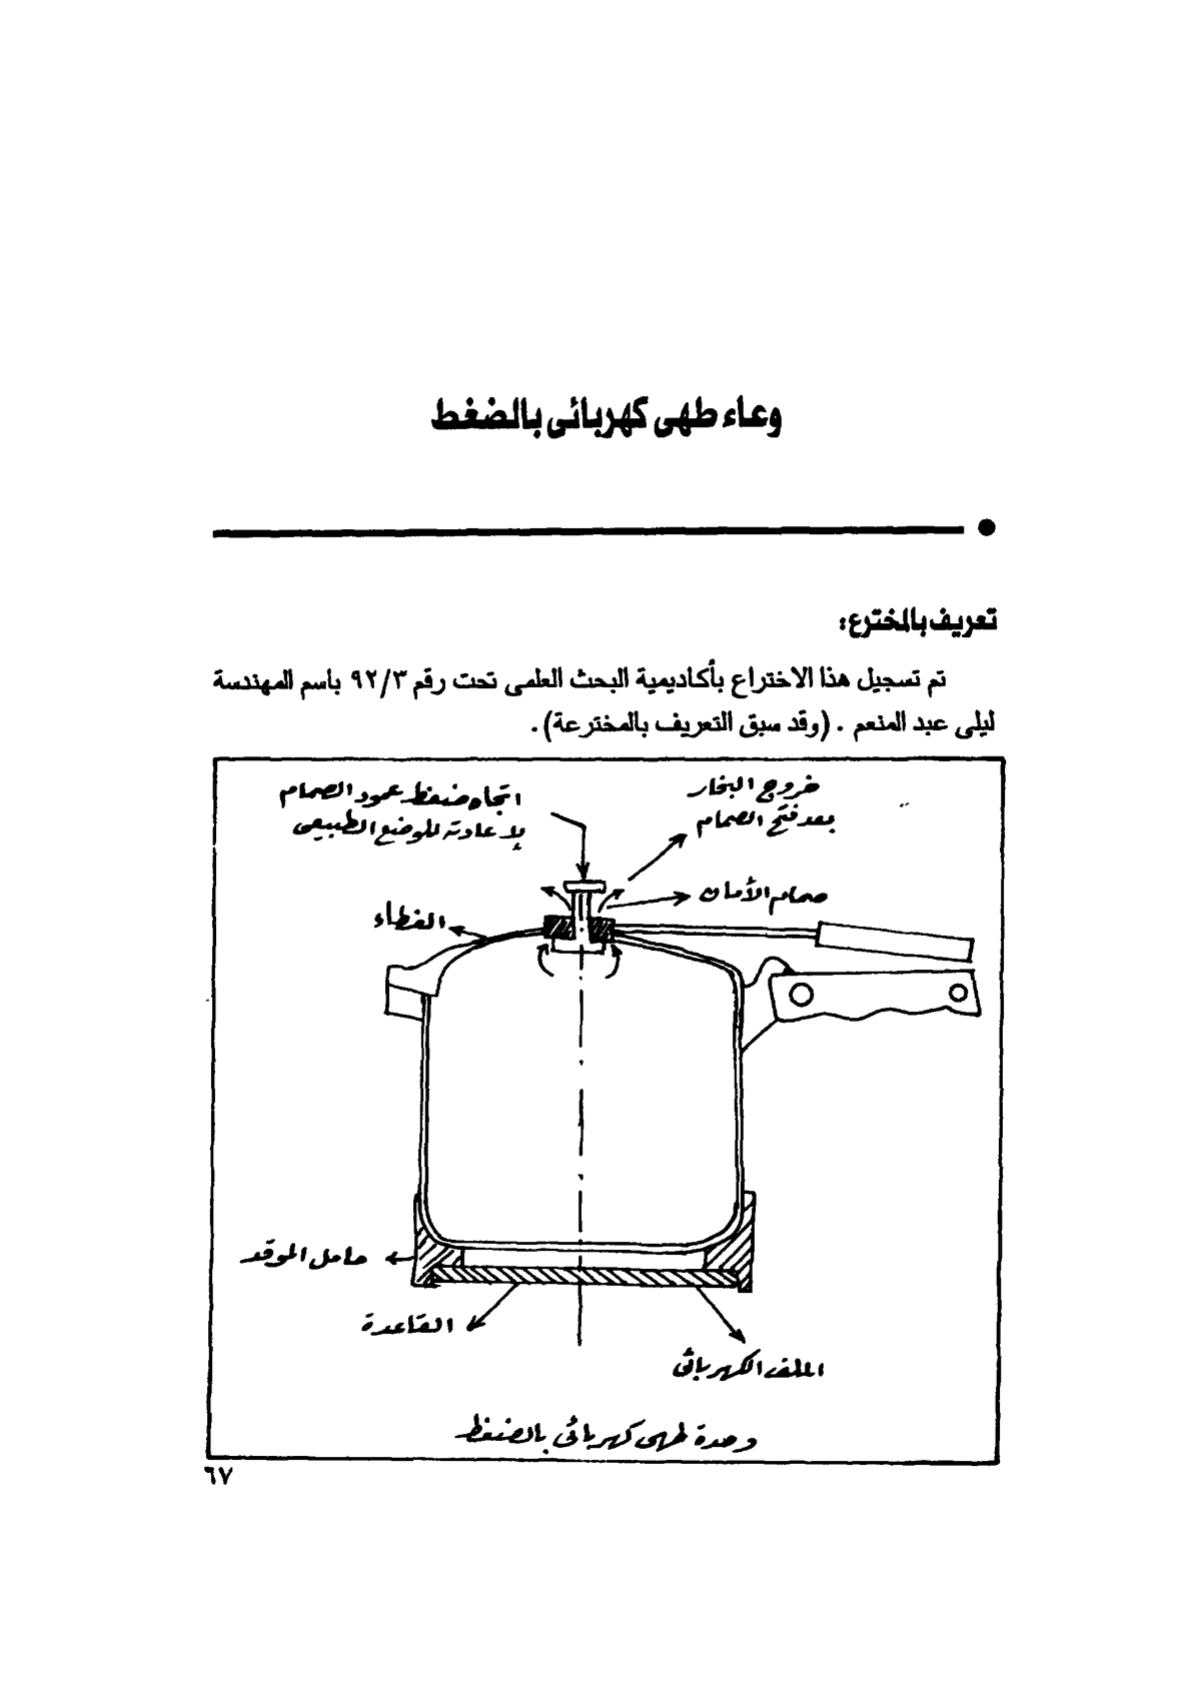 وعاء طهى كهربائى بالضغط
تعريف بالمخترع:
تم تسجيل هذا الاختراع بأكاديمية البحث العلمى تحت رقم ٩٢/٣ باسم المهندسة
ليلى عبد المنعم . (وقد سبق التعريف بالمخترعة).
خروج البخار
بعد فتح الصمام
اتجاه ضغط عمود الصمام
لإعادته للوضع الطبيعى
صمام الأمان
الغطاء
حامل الموقد
القاعدة
الملف الكهربائى
وحدة طهى كهربائى بالضغط
٦٧